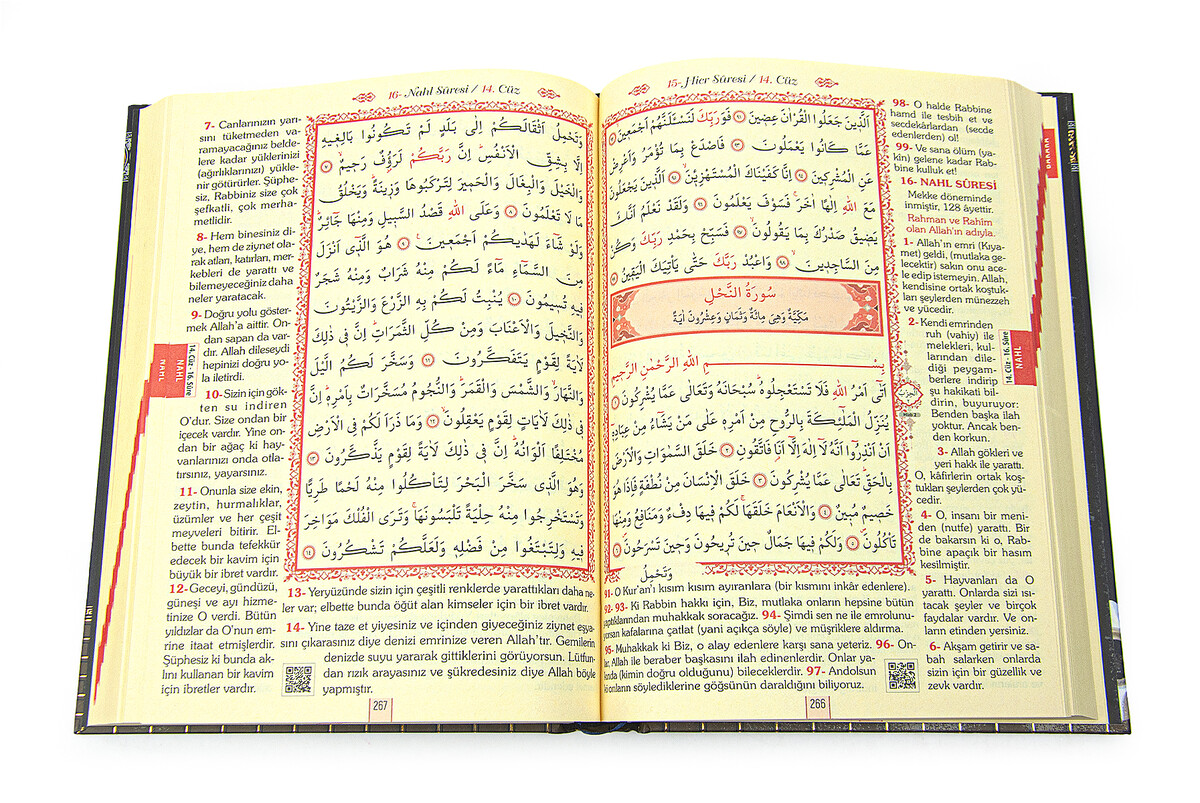 15- Hicr Sûresi / 14. Cüz
اَلَّذِينَ جَعَلُوا الْقُرْاٰنَ عِضِينَ ﴿٩١﴾ فَوَرَبِّكَ لَنَسْـَٔلَنَّهُمْ اَجْمَعِينَ ﴿٩٢﴾
عَمَّا كَانُوا يَعْمَلُونَ ﴿٩٣﴾ فَاصْدَعْ بِمَا تُؤْمَرُ وَاَعْرِضْ
عَنِ الْمُشْرِكِينَ ﴿٩٤﴾ اِنَّا كَفَيْنَاكَ الْمُسْتَهْزِئِينَ ﴿٩٥﴾ اَلَّذِينَ يَجْعَلُونَ
مَعَ اللّٰهِ اِلٰهًا اٰخَرَ فَسَوْفَ يَعْلَمُونَ ﴿٩٦﴾ وَلَقَدْ نَعْلَمُ اَنَّكَ
يَضِيقُ صَدْرُكَ بِمَا يَقُولُونَ ﴿٩٧﴾ فَسَبِّحْ بِحَمْدِ رَبِّكَ وَكُنْ
مِنَ السَّاجِدِينَ ﴿٩٨﴾ وَاعْبُدْ رَبَّكَ حَتّٰى يَأْتِيَكَ الْيَقِينُ ﴿٩٩﴾
سُورَةُ النَّحْلِ
مَكِّيَّةٌ وَهِىَ مِائَةٌ وَثَمَانٍ وَعِشْرُونَ اٰيَةً
بِسْمِ اللّٰهِ الرَّحْمٰنِ الرَّحِيمِ
اَتٰٓى اَمْرُ اللّٰهِ فَلَا تَسْتَعْجِلُوهُ سُبْحَانَهُ وَتَعَالٰى عَمَّا يُشْرِكُونَ ﴿١﴾
يُنَزِّلُ الْمَلٰٓئِكَةَ بِالرُّوحِ مِنْ اَمْرِهِ عَلٰى مَنْ يَشَٓاءُ مِنْ عِبَادِهِ
اَنْ اَنْذِرُٓوا اَنَّهُ لَٓا اِلٰهَ اِلَّٓا اَنَا۬ فَاتَّقُونِ ﴿٢﴾ خَلَقَ السَّمٰوَاتِ وَالْاَرْضَ
بِالْحَقِّ تَعَالٰى عَمَّا يُشْرِكُونَ ﴿٣﴾ خَلَقَ الْاِنْسَانَ مِنْ نُطْفَةٍ فَاِذَا هُوَ
خَصِيمٌ مُبِينٌ ﴿٤﴾ وَالْاَنْعَامَ خَلَقَهَا لَكُمْ فِيهَا دِفْءٌ وَمَنَافِعُ وَمِنْهَا
تَأْكُلُونَ ﴿٥﴾ وَلَكُمْ فِيهَا جَمَالٌ حِينَ تُرِيحُونَ وَحِينَ تَسْرَحُونَ ﴿٦﴾
وَتَحْمِلُ
الحزب
98- O halde Rabbine
hamd ile tesbih et ve
secdekârlardan (secde
edenlerden) ol!
99- Ve sana ölüm (ya-
kîn) gelene kadar Rab-
bine kulluk et!
16- NAHL SÛRESİ
Mekke döneminde
inmiştir, 128 âyettir.
Rahman ve Rahîm
olan Allah'ın adıyla.
1- Allah'ın emri (Kıya-
met) geldi, (mutlaka ge-
lecektir) sakın onu ace-
le edip istemeyin. Allah,
kendisine ortak koştuk-
ları şeylerden münezzeh
ve yücedir.
2- Kendi emrinden
ruh (vahiy) ile
melekleri, kul-
larından dile-
diği peygam-
berlere indirip
şu hakikati bil-
dirin, buyuruyor:
Benden başka ilah
yoktur. Ancak ben-
den korkun.
3- Allah gökleri ve
yeri hakk ile yarattı.
O, kâfirlerin ortak koş-
tukları şeylerden çok yü-
cedir.
4- O, insanı bir meni-
den (nutfe) yarattı. Bir
de bakarsın ki o, Rab-
bine apaçık bir hasım
kesilmiştir.
5- Hayvanları da O
yarattı. Onlarda sizi ısı-
tacak şeyler ve birçok
faydalar vardır. Ve on-
ların etinden yersiniz.
6- Akşam getirir ve sa-
bah salarken onlarda
sizin için bir güzellik ve
zevk vardır.
91- O Kur'an'ı kısım kısım ayıranlara (bir kısmını inkâr edenlere).
92- 93- Ki Rabbin hakkı için, Biz, mutlaka onların hepsine bütün
yaptıklarından muhakkak soracağız. 94- Şimdi sen ne ile emrolunu-
yorsan kafalarına çatlat (yani açıkça söyle) ve müşriklere aldırma.
95- Muhakkak ki Biz, o alay edenlere karşı sana yeteriz. 96- On-
lar, Allah ile beraber başkasını ilah edinenlerdir. Onlar ya-
kında (kimin doğru olduğunu) bileceklerdir. 97- Andolsun
ki onların söylediklerine göğsünün daraldığını biliyoruz.
14. Cüz - 16. Sûre
NAHL
266
16- Nahl Sûresi / 14. Cüz
وَتَحْمِلُ اَثْقَالَكُمْ اِلٰى بَلَدٍ لَمْ تَكُونُوا بَالِغِيهِ
اِلَّا بِشِقِّ الْاَنْفُسِ اِنَّ رَبَّكُمْ لَرَؤُ۫فٌ رَحِيمٌ ﴿٧﴾
وَالْخَيْلَ وَالْبِغَالَ وَالْحَمِيرَ لِتَرْكَبُوهَا وَزِينَةً وَيَخْلُقُ
مَا لَا تَعْلَمُونَ ﴿٨﴾ وَعَلَى اللّٰهِ قَصْدُ السَّبِيلِ وَمِنْهَا جَٓائِرٌ
وَلَوْ شَٓاءَ لَهَدٰيكُمْ اَجْمَعِينَ ﴿٩﴾ هُوَ الَّذِٓى اَنْزَلَ
مِنَ السَّمَٓاءِ مَٓاءً لَكُمْ مِنْهُ شَرَابٌ وَمِنْهُ شَجَرٌ
فِيهِ تُسِيمُونَ ﴿١٠﴾ يُنْبِتُ لَكُمْ بِهِ الزَّرْعَ وَالزَّيْتُونَ
وَالنَّخِيلَ وَالْاَعْنَابَ وَمِنْ كُلِّ الثَّمَرَاتِ اِنَّ فِى ذٰلِكَ
لَاٰيَةً لِقَوْمٍ يَتَفَكَّرُونَ ﴿١١﴾ وَسَخَّرَ لَكُمُ الَّيْلَ
وَالنَّهَارَ وَالشَّمْسَ وَالْقَمَرَ وَالنُّجُومُ مُسَخَّرَاتٌ بِاَمْرِهِ اِنَّ
فِى ذٰلِكَ لَاٰيَاتٍ لِقَوْمٍ يَعْقِلُونَ ﴿١٢﴾ وَمَا ذَرَاَ لَكُمْ فِى الْاَرْضِ
مُخْتَلِفًا اَلْوَانُهُ اِنَّ فِى ذٰلِكَ لَاٰيَةً لِقَوْمٍ يَذَّكَّرُونَ ﴿١٣﴾
وَهُوَ الَّذِى سَخَّرَ الْبَحْرَ لِتَأْكُلُوا مِنْهُ لَحْمًا طَرِيًّا
وَتَسْتَخْرِجُوا مِنْهُ حِلْيَةً تَلْبَسُونَهَا وَتَرَى الْفُلْكَ مَوَاخِرَ
فِيهِ وَلِتَبْتَغُوا مِنْ فَضْلِهِ وَلَعَلَّكُمْ تَشْكُرُونَ ﴿١٤﴾
7- Canlarınızın yarı-
sını tüketmeden va-
ramayacağınız belde-
lere kadar yüklerinizi
(ağırlıklarınızı) yükle-
nir götürürler. Şüphe-
siz, Rabbiniz size çok
şefkatli, çok merha-
metlidir.
8- Hem binesiniz di-
ye, hem de ziynet ola-
rak atları, katırları, mer-
kebleri de yarattı ve
bilemeyeceğiniz daha
neler yaratacak.
9- Doğru yolu göster-
mek Allah'a aittir. On-
dan sapan da var-
dır. Allah dileseydi
hepinizi doğru yo-
la iletirdi.
10- Sizin için gök-
ten su indiren
O'dur. Size ondan bir
içecek vardır. Yine on-
dan bir ağaç ki hay-
vanlarınızı onda otla-
tırsınız, yayarsınız.
11- Onunla size ekin,
zeytin, hurmalıklar,
üzümler ve her çeşit
meyveleri bitirir. El-
bette bunda tefekkür
edecek bir kavim için
büyük bir ibret vardır.
12- Geceyi, gündüzü,
güneşi ve ayı hizme-
tinize O verdi. Bütün
yıldızlar da O'nun em-
rine itaat etmişlerdir.
Şüphesiz ki bunda ak-
lını kullanan bir kavim
için ibretler vardır.
13- Yeryüzünde sizin için çeşitli renklerde yarattıkları daha ne-
ler var; elbette bunda öğüt alan kimseler için bir ibret vardır.
14- Yine taze et yiyesiniz ve içinden giyeceğiniz ziynet eşya-
sını çıkarasınız diye denizi emrinize veren Allah'tır. Gemilerin
denizde suyu yararak gittiklerini görüyorsun. Lütfun-
dan rızık arayasınız ve şükredesiniz diye Allah böyle
yapmıştır.
14. Cüz - 16. Sûre
NAHL
NAHL
267